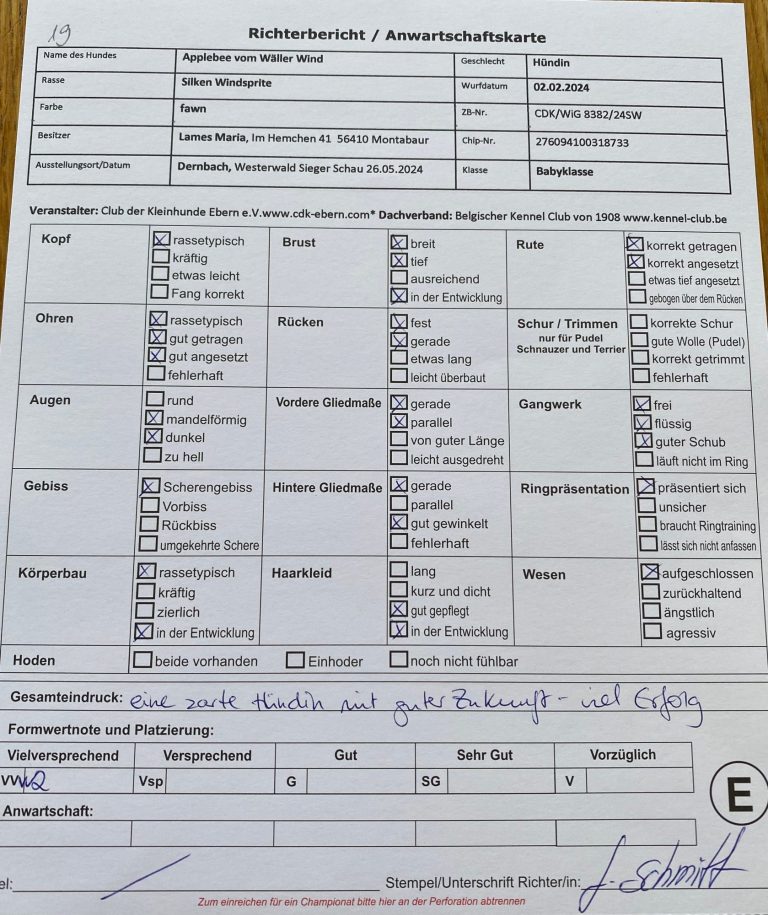 19
Richterbericht / Anwartschaftskarte
Name des Hundes Applebee vom Wäller Wind Geschlecht Hündin
Rasse Silken Windsprite Wurfdatum 02.02.2024
Farbe fawn ZB-Nr. CDK/WiG 8382/24SW
Besitzer Lames Maria, Im Hemchen 41 56410 Montabaur Chip-Nr. 276094100318733
Ausstellungsort/Datum Dernbach, Westerwald Sieger Schau 26.05.2024 Klasse Babyklasse
Veranstalter: Club der Kleinhunde Ebern e.V.www.cdk-ebern.com* Dachverband: Belgischer Kennel Club von 1908 www.kennel-club.be
Kopf
rassetypisch
kräftig
etwas leicht
Fang korrekt
Brust
breit
tief
ausreichend
in der Entwicklung
Rute
korrekt getragen
korrekt angesetzt
etwas tief angesetzt
gebogen über dem Rücken
Ohren
rassetypisch
gut getragen
gut angesetzt
fehlerhaft
Rücken
fest
gerade
etwas lang
leicht überbaut
Schur / Trimmen
nur für Pudel
Schnauzer und Terrier
korrekte Schur
gute Wolle (Pudel)
korrekt getrimmt
fehlerhaft
Augen
rund
mandelförmig
dunkel
zu hell
Vordere Gliedmaße
gerade
parallel
von guter Länge
leicht ausgedreht
Gangwerk
frei
flüssig
guter Schub
läuft nicht im Ring
Gebiss
Scherengebiss
Vorbiss
Rückbiss
umgekehrte Schere
Hintere Gliedmaße
gerade
parallel
gut gewinkelt
fehlerhaft
Ringpräsentation
präsentiert sich
unsicher
braucht Ringtraining
lässt sich nicht anfassen
Körperbau
rassetypisch
kräftig
zierlich
in der Entwicklung
Haarkleid
lang
kurz und dicht
gut gepflegt
in der Entwicklung
Wesen
aufgeschlossen
zurückhaltend
ängstlich
agressiv
Hoden beide vorhanden Einhoder noch nicht fühlbar
Gesamteindruck: eine zarte Hündin mit guter Zukunft - viel Erfolg
Formwertnote und Platzierung:
Vielversprechend Versprechend Gut Sehr Gut Vorzüglich
VV Vsp G SG V
E
Anwartschaft:
el: Stempel/Unterschrift Richter/in: J. Schmitt
Zum einreichen für ein Championat bitte hier an der Perforation abtrennen